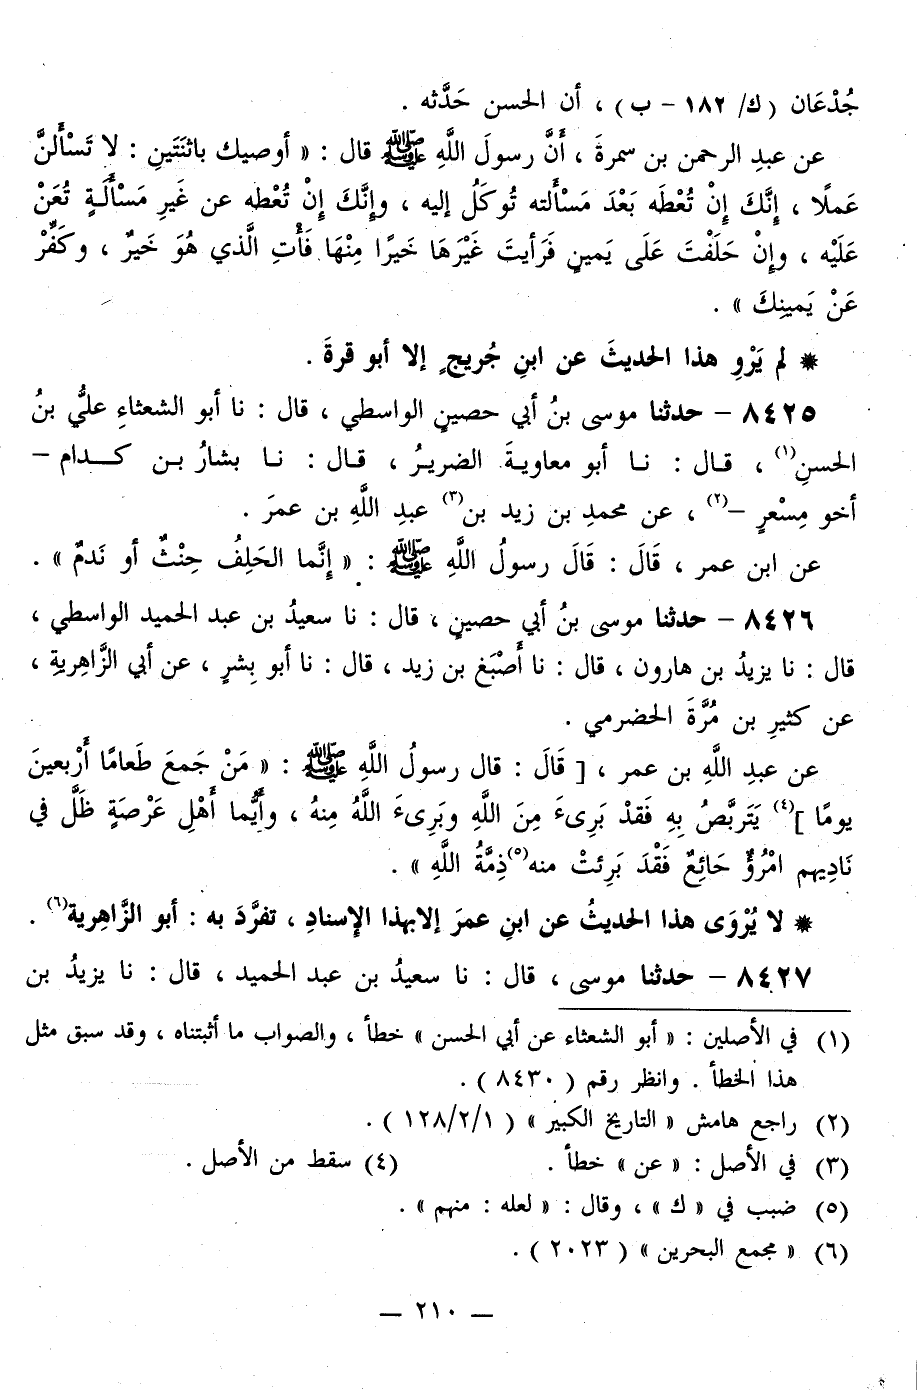 جُدْعَان (ك/ ١٨٢ - ب) ، أن الحسن حَدَّثه .
عن عبدِ الرحمن بن سمرةَ ، أَنَّ رسولَ اللَّهِ ﷺ قال : « أوصيك باثنَتَينِ : لا تَسْأَلنَّ
عَملًا ، إِنَّكَ إِنْ تُعْطَه بَعْدَ مَسْأَلته تُوكَلُ إليه ، وإِنَّكَ إِنْ تُعْطه عن غَيرِ مَسْأَلَةٍ تُعَنْ
عَلَيْه ، وإِنْ حَلَفْتَ عَلَى يَمينٍ فَرَأيتَ غَيْرَهَا خَيرًا مِنْهَا فَأْتِ الَّذي هُوَ خَيرٌ ، وكَفِّرْ
عَنْ يَمينِكَ » .
* لم يَرْوِ هذا الحديثَ عن ابنِ جُريجٍ إلا أبو قرةَ .
٨٤٢٥ - حدثنا موسى بنُ أبي حصينٍ الواسطي ، قال : نا أبو الشعثاءِ عليُّ بنُ
الحسنِ(١) ، قـال : نـا أبو معاويـةَ الضريـرُ ، قـال : نـا بشارُ بـن كـدام -
أخو مِسْعرٍ -(٢) ، عن محمدِ بن زيد بن(٣) عبدِ اللَّهِ بن عمرَ .
عن ابن عمر ، قَالَ : قَالَ رسولُ اللَّهِ ﷺ : « إِنَّما الحَلِفُ حِنْثٌ أو نَدمٌ » .
٨٤٢٦ - حدثنا موسى بنُ أبي حصينٍ ، قال : نا سعيدُ بن عبد الحميد الواسطي ،
قال : نا يزيدُ بن هارون ، قال : نا أَصْبَغ بن زيد ، قال : نا أبو بِشرٍ ، عن أبي الزَّاهِريةِ ،
عن كثيرِ بن مُرَّةَ الحضرمي .
عن عبدِ اللَّهِ بن عمر ، [ قَالَ : قال رسولُ اللَّهِ ﷺ : « مَنْ جَمعَ طَعامًا أَرْبعينَ
يومًا ](٤) يَتَربَّصُ بِهِ فَقدْ بَرِىءَ مِنَ اللَّهِ وبَرِىءَ اللَّهُ مِنهُ ، وأَيُّما أَهْلِ عَرْصَةٍ ظَلَّ في
نَادِيهم امْرُؤٌ جَائِعٌ فَقَدْ بَرِئتْ منه(٥) ذِمَّةُ اللَّهِ » .
* لا يُرْوَى هذا الحديثُ عن ابنِ عمرَ إلابهذا الإِسنادِ ، تفرَّدَ به : أبو الزَّاهرية(٦) .
٨٤٢٧ - حدثنا موسى ، قال : نا سعيدُ بن عبد الحميد ، قال : نا يزيدُ بن
(١) في الأصلين : « أبو الشعثاء عن أبي الحسن » خطأ ، والصواب ما أثبتناه ، وقد سبق مثل
هذا الخطأ . وانظر رقم ( ٨٤٣٠ ) .
(٢) راجع هامش « التاريخ الكبير » ( ١٢٨/٢/١ ) .
(٣) في الأصل : « عن » خطأ . (٤) سقط من الأصل .
(٥) ضبب في « ك » ، وقال : « لعله : منهم » .
(٦) « مجمع البحرين » ( ٢٠٢٣ ) .
- ٢١٠ -